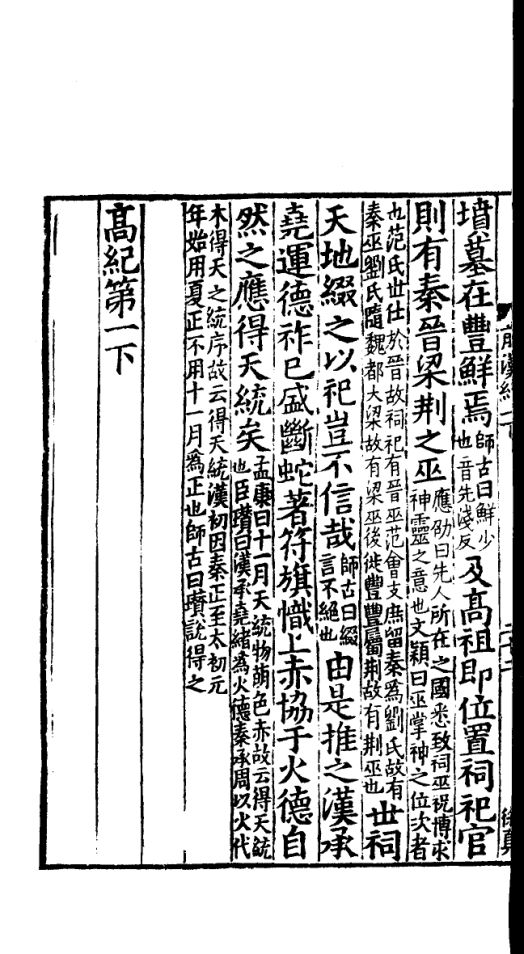 墳墓在豐鮮焉師古曰鮮少也音先淺反及髙祖即位置祠祀官
則有秦晉梁荆之巫應劭曰先人所在之國悉致祠巫祝博求神靈之意也文穎曰巫掌神之位次者
也范氏世仕於晉故祠祀有晉巫范會支庶留秦爲劉氏故有秦巫劉氏隨魏都大梁故有梁巫後徙豐豐屬荆故有荆巫也世祠
天地綴之以祀豈不信哉師古曰綴言不絕也由是推之漢承
堯運德祚已盛斷蛇著符旗幟上赤協于火德自
然之應得天統矣孟康曰十一月天統物萌色赤故云得天統也臣瓚曰漢承堯緒為火德秦承周以火代
木得天之統序故云得天統漢初因秦正至太初元年始用夏正不用十一月爲正也師古曰瓚說得之
髙紀第一下